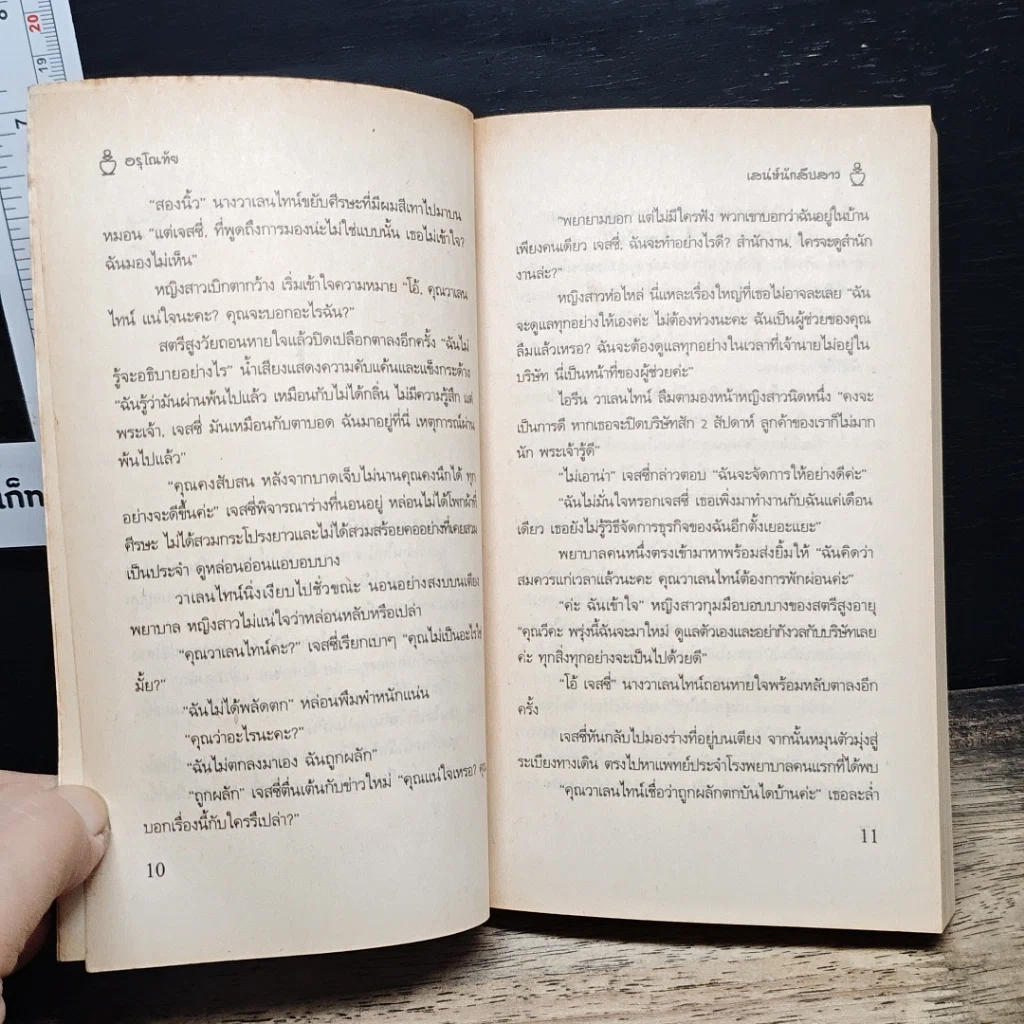 20
19
7
เก็ท
อรุโณทัย
"สองนิ้ว" นางวาเลนไทน์ขยับศีรษะที่มีผมสีเทาไปมาบน
หมอน "แต่เจสซี่, ที่พูดถึงการมองน่ะไม่ใช่แบบนั้น เธอไม่เข้าใจ?
ฉันมองไม่เห็น"
หญิงสาวเบิกตากว้าง เริ่มเข้าใจความหมาย "โอ้. คุณวาเลน
ไทน์ แน่ใจนะคะ? คุณจะบอกอะไรฉัน?"
สตรีสูงวัยถอนหายใจแล้วปิดเปลือกตาลงอีกครั้ง "ฉันไม่
รู้จะอธิบายอย่างไร" น้ำเสียงแสดงความคับแค้นและแข็งกระด้าง
"ฉันรู้ว่ามันผ่านพ้นไปแล้ว เหมือนกับไม่ได้กลิ่น ไม่มีความรู้สึก แต่
พระเจ้า, เจสซี่ มันเหมือนกับตาบอด ฉันมาอยู่ที่นี่ เหตุการณ์ผ่าน
พ้นไปแล้ว"
"คุณคงสับสน หลังจากบาดเจ็บไม่นานคุณคงนึกได้ ทุก
อย่างจะดีขึ้นค่ะ" เจสซี่พิจารณาร่างที่นอนอยู่ หล่อนไม่ได้โพกผ้าที่
ศีรษะ ไม่ได้สวมกระโปรงยาวและไม่ได้สวมสร้อยคออย่างที่เคยสวม
เป็นประจำ ดูหล่อนอ่อนแอบอบบาง
วาเลนไทน์นิ่งเงียบไปชั่วขณะ นอนอย่างสงบบนเตียง
พยาบาล หญิงสาวไม่แน่ใจว่าหล่อนหลับหรือเปล่า
"คุณวาเลนไทน์คะ?" เจสซี่เรียกเบาๆ "คุณไม่เป็นอะไรใช่
มั้ย?"
"ฉันไม่ได้พลัดตก" หล่อนพึมพำหนักแน่น
"คุณว่าอะไรนะคะ?"
"ฉันไม่ตกลงมาเอง ฉันถูกผลัก"
"ถูกผลัก" เจสซี่ตื่นเต้นกับข่าวใหม่ "คุณแน่ใจเหรอ?
บอกเรื่องนี้กับใครรึเปล่า?"
10
เสน่ห์นักสืบสาว
"พยายามบอก แต่ไม่มีใครฟัง พวกเขาบอกว่าฉันอยู่ในบ้าน
เพียงคนเดียว เจสซี่, ฉันจะทำอย่างไรดี? สำนักงาน, ใครจะดูสำนัก
งานล่ะ?"
หญิงสาวห่อไหล่ นี่แหละเรื่องใหญ่ที่เธอไม่อาจละเลย "ฉัน
จะดูแลทุกอย่างให้เองค่ะ ไม่ต้องห่วงนะคะ ฉันเป็นผู้ช่วยของคุณ
ลืมแล้วเหรอ? ฉันจะต้องดูแลทุกอย่างในเวลาที่เจ้านายไม่อยู่ใน
บริษัท นี่เป็นหน้าที่ของผู้ช่วยค่ะ"
ไอรีน วาเลนไทน์ ลืมตามองหน้าหญิงสาวนิดหนึ่ง "คงจะ
เป็นการดี หากเธอจะปิดบริษัทสัก 2 สัปดาห์ ลูกค้าของเราก็ไม่มาก
นัก พระเจ้ารู้ดี"
"ไม่เอาน่า" เจสซี่กล่าวตอบ "ฉันจะจัดการให้อย่างดีค่ะ"
"ฉันไม่มั่นใจหรอกเจสซี่ เธอเพิ่งมาทำงานกับฉันแค่เดือน
เดียว เธอยังไม่รู้วิธีจัดการธุรกิจของฉันอีกตั้งเยอะแยะ"
พยาบาลคนหนึ่งตรงเข้ามาหาพร้อมส่งยิ้มให้ "ฉันคิดว่า
สมควรแก่เวลาแล้วนะคะ คุณวาเลนไทน์ต้องการพักผ่อนค่ะ"
"ค่ะ ฉันเข้าใจ" หญิงสาวกุมมือบอบบางของสตรีสูงอายุ
"คุณวีคะ พรุ่งนี้ฉันจะมาใหม่ ดูแลตัวเองและอย่ากังวลกับบริษัทเลย
ค่ะ ทุกสิ่งทุกอย่างจะเป็นไปด้วยดี"
"โอ้ เจสซี่" นางวาเลนไทน์ถอนหายใจพร้อมหลับตาลงอีก
ครั้ง
เจสซี่หันกลับไปมองร่างที่อยู่บนเตียง จากนั้นหมุนตัวมุ่งสู่
ระเบียงทางเดิน ตรงไปหาแพทย์ประจำโรงพยาบาลคนแรกที่ได้พบ
"คุณวาเลนไทน์เชื่อว่าถูกผลักตกบันไดบ้านค่ะ" เธอละล่ำ
11